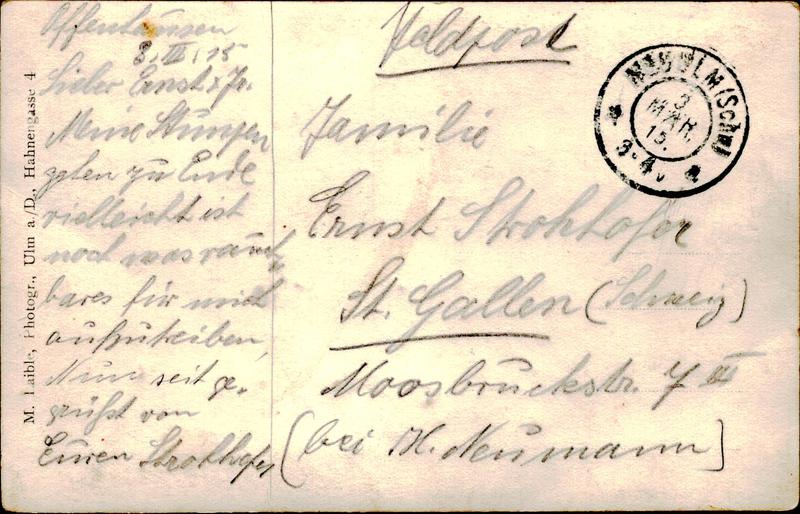 Offenhausen
3. III. 15
Lieber Ernst & Fr.
Meine Stumpen
gehen zu Ende
vielleicht ist
noch was rauch-
bares für mich
aufzutreiben,
Nun seit ge-
grüßt von
Euren Strohhofer
Feldpost
Familie
Ernst Strohhofer
St. Gallen (Schweiz)
Moosbruckstr. 7 III
(bei H. Neumann)
NEU-ULM (Schw)
3
MÄR.
15.
3-4.
M. Laible, Photogr., Ulm a./D., Hahnengasse 4